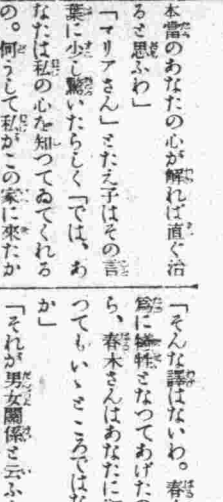 本當のあなたの心が解れば直ぐ治
ると思ふわ」
「マリアさん」とたえ子はその言
葉に少し驚いたらしく「では、あ
なたは私の心を知つてゐてくれる
の。何うして私がこの家に來たか
「そんな譯はないわ。春
爲に犧牲となつてあげた
ら、春木さんはあなたに
つてもいゝところではな
か」
「それが男女關係と云ふ